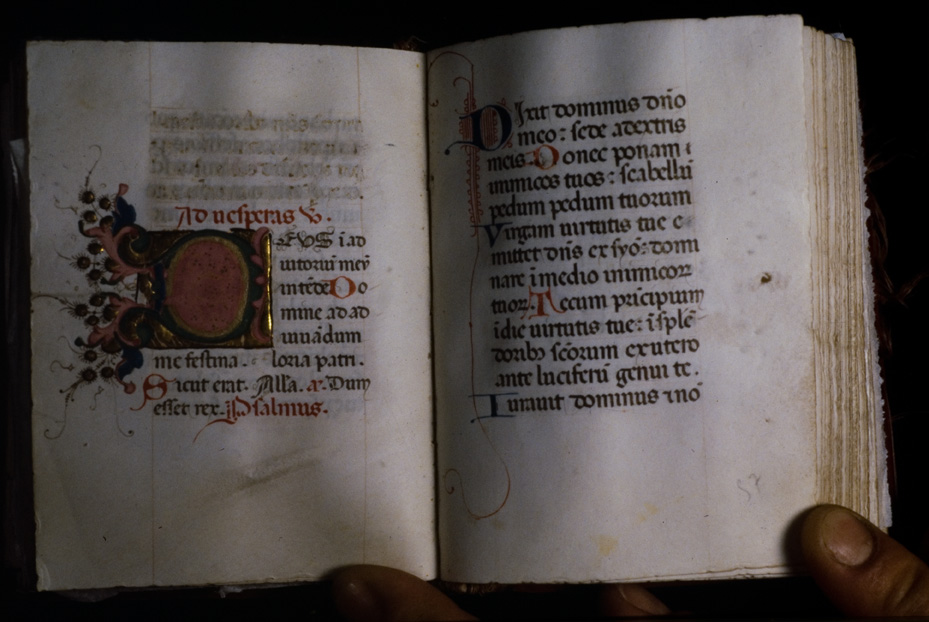 Ad uesperas V̄.
EVS i ad
iutoriū meū
intēde Do
mine ad ad
iuuādum
me festina. loria patri.
Sicut erat. Alla. añ. Dum
esset rex. Psalmus.
Dixit dominus dño
meo: sede adextris
meis. Donec ponam i
inimicos tuos: scabellū
pedum pedum tuorum
Virgam uirtutis tue e
mittet dñs ex syō: domi
nare i medio inimicor
tuor. Tecum principium
i die uirtutis tue: i splē
doribȝ scōrum ex utero
ante luciferū genui te.
Iurauit dominus ⁊ nō
57